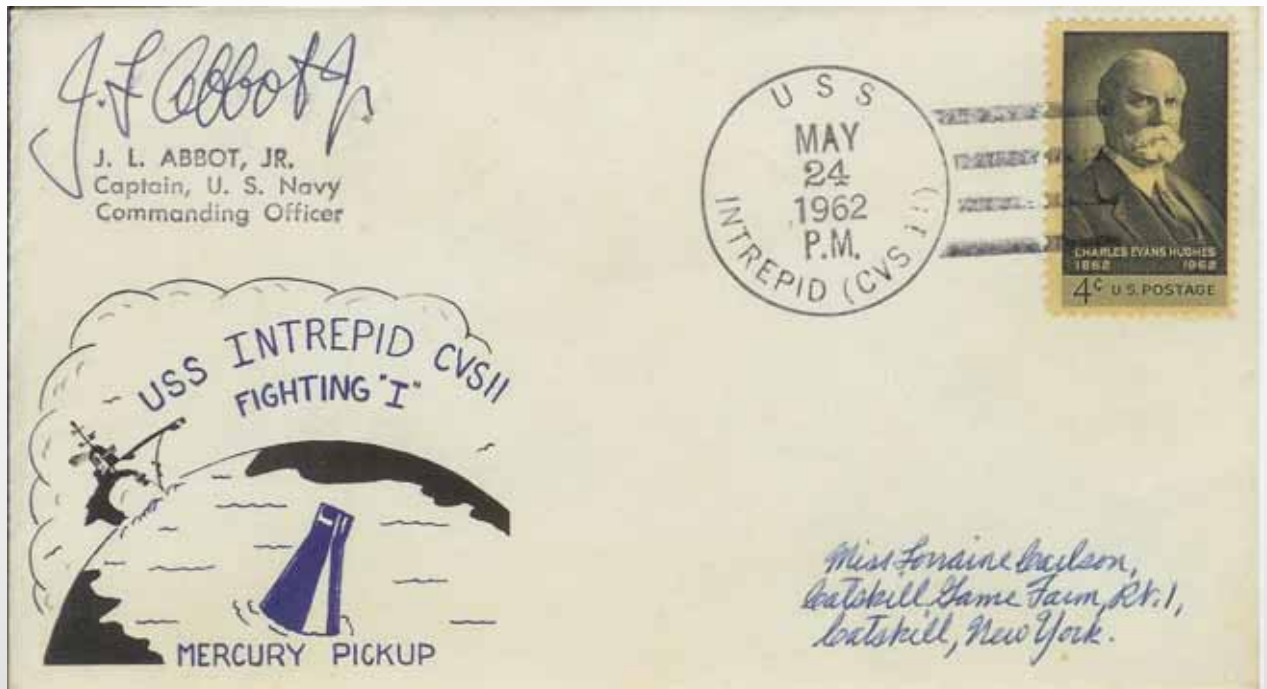 J. L Abbot Jr
J. L. ABBOT, JR.
Captain, U. S. Navy
Commanding Officer
USS
MAY
24
1962
P.M.
INTREPID (CVS 11)
CHARLES EVANS HUGHES
1862 1962
4c U.S. POSTAGE
USS INTREPID CVS11
FIGHTING "I"
MERCURY PICKUP
Miss Lorraine Carlson,
Catskill Game Farm, Rt. 1,
Catskill, New York.